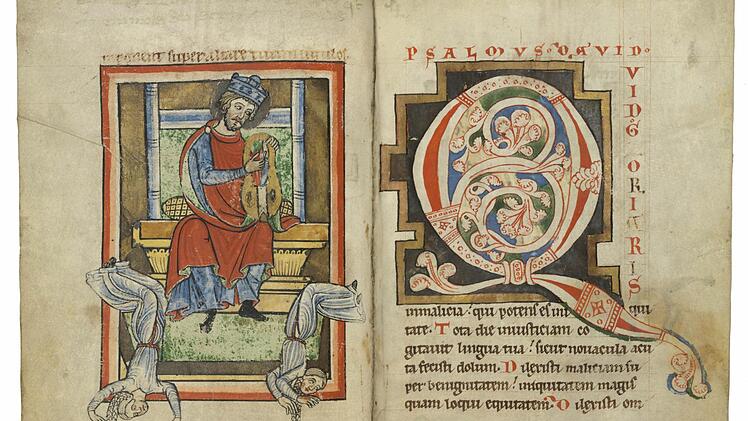 super altare tuum uitulos
PSALMVS·DAVID·
VIDG ORIARIS
inmalicia? qui potens es ini qui
tate. Tota die iniusticiam co
gitauit lingua tua? sicut nouacula acu
ta fecisti dolum. Dilexisti maliciam su
per benignitatem? iniquitatem magis
quam loqui equitatem. Dilexisti om